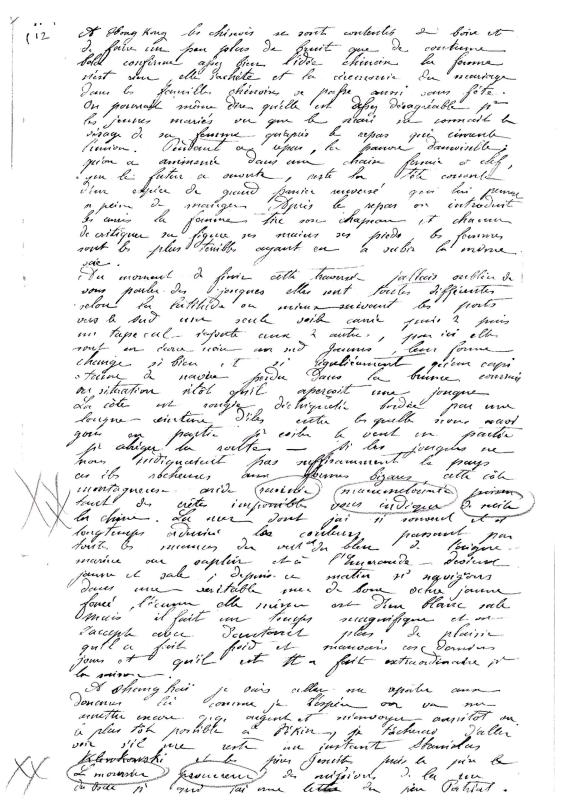 (12
A Hong Kong les chinois se sont contentés de boire et
de faire un peu plus de bruit que de coutume
cela confirme assez bien l'idée chinoise la femme
n'est rien, elle s'achète et la cérémonie du mariage
dans les familles chinoises se passe aussi sans fête.
On pourrait même dire qu'elle est assez désagréable pr
les jeunes mariés vu que le mari ne connait le
visage de sa femme qu'après le repas qui
l'union. Pendant ce repas, la pauvre demoiselle,
qu'on a amenée dans une chaise fermée à clef,
que le futur a ouverte, reste la tête couverte
d'une espèce de grand panier renversé qui lui permet
à peine de manger. Après le repas on introduit
les amis la femme tire son chapeau, et chacun
de critiquer sa figure ses mains ses pieds, les femmes
sont les plus terribles ayant eu à subir la même
Au moment de finir cette traversée j'allais oublier de
vous parler des jonques elles sont toutes différentes
selon la latitude ou mieux suivant les ports
vers le sud une seule voile carrée puis 2 puis
un tape cul ensuite aux 2 autres, par ici elles
sont en
change si bien et si régulièrement qu'un capi
-taine de navire perdu dans la brume connait
sa situation sitôt qu'il aperçoit une jonque
La côte est rongée déchiquetée bordée par une
longue ceinture d'îles entre lesquelles nous navi
guons en partie pr éviter le vent en partie
pr abréger la route — Si les jonques ne
nous indiquaient pas suffisamment le pays
ces îles rocheuses aux formes bizarres cette côte
montagneuse aride ravinée mamelonnée
tout des crêtes impossibles vous indiquer de suite
la chine. La mer dont j'ai si souvent et si
longtemps admiré les couleurs passant par
toutes les nuances du vert du bleu de l'aigue
marine au saphir et à l'émeraude — devient
jaune et sale ; depuis ce matin ns naviguons
dans une véritable mer de boue ocre jaune
foncé, l'écume elle même est d'un blanc sale
Mais il fait un temps magnifique et on
l'accepte avec d'autant plus de plaisir
qu'il a fait froid et mauvais ces derniers
jours et qu'il est tt à fait extraordinaire pr
la saison.
A Shanghaï je vais aller
là comme je l'espère on va me
remettre encore qq. argent et m'envoyer aussitôt ou
le plus tôt possible à Pékin, je tâcherai d'aller
voir s'il me reste un instant Stanislas
Klowkowski et les pères Jesuites puis le père
Le mounier procureur des missions de la rue
du bac pr qui j'ai une lettre du père Patriat.
XX
XX